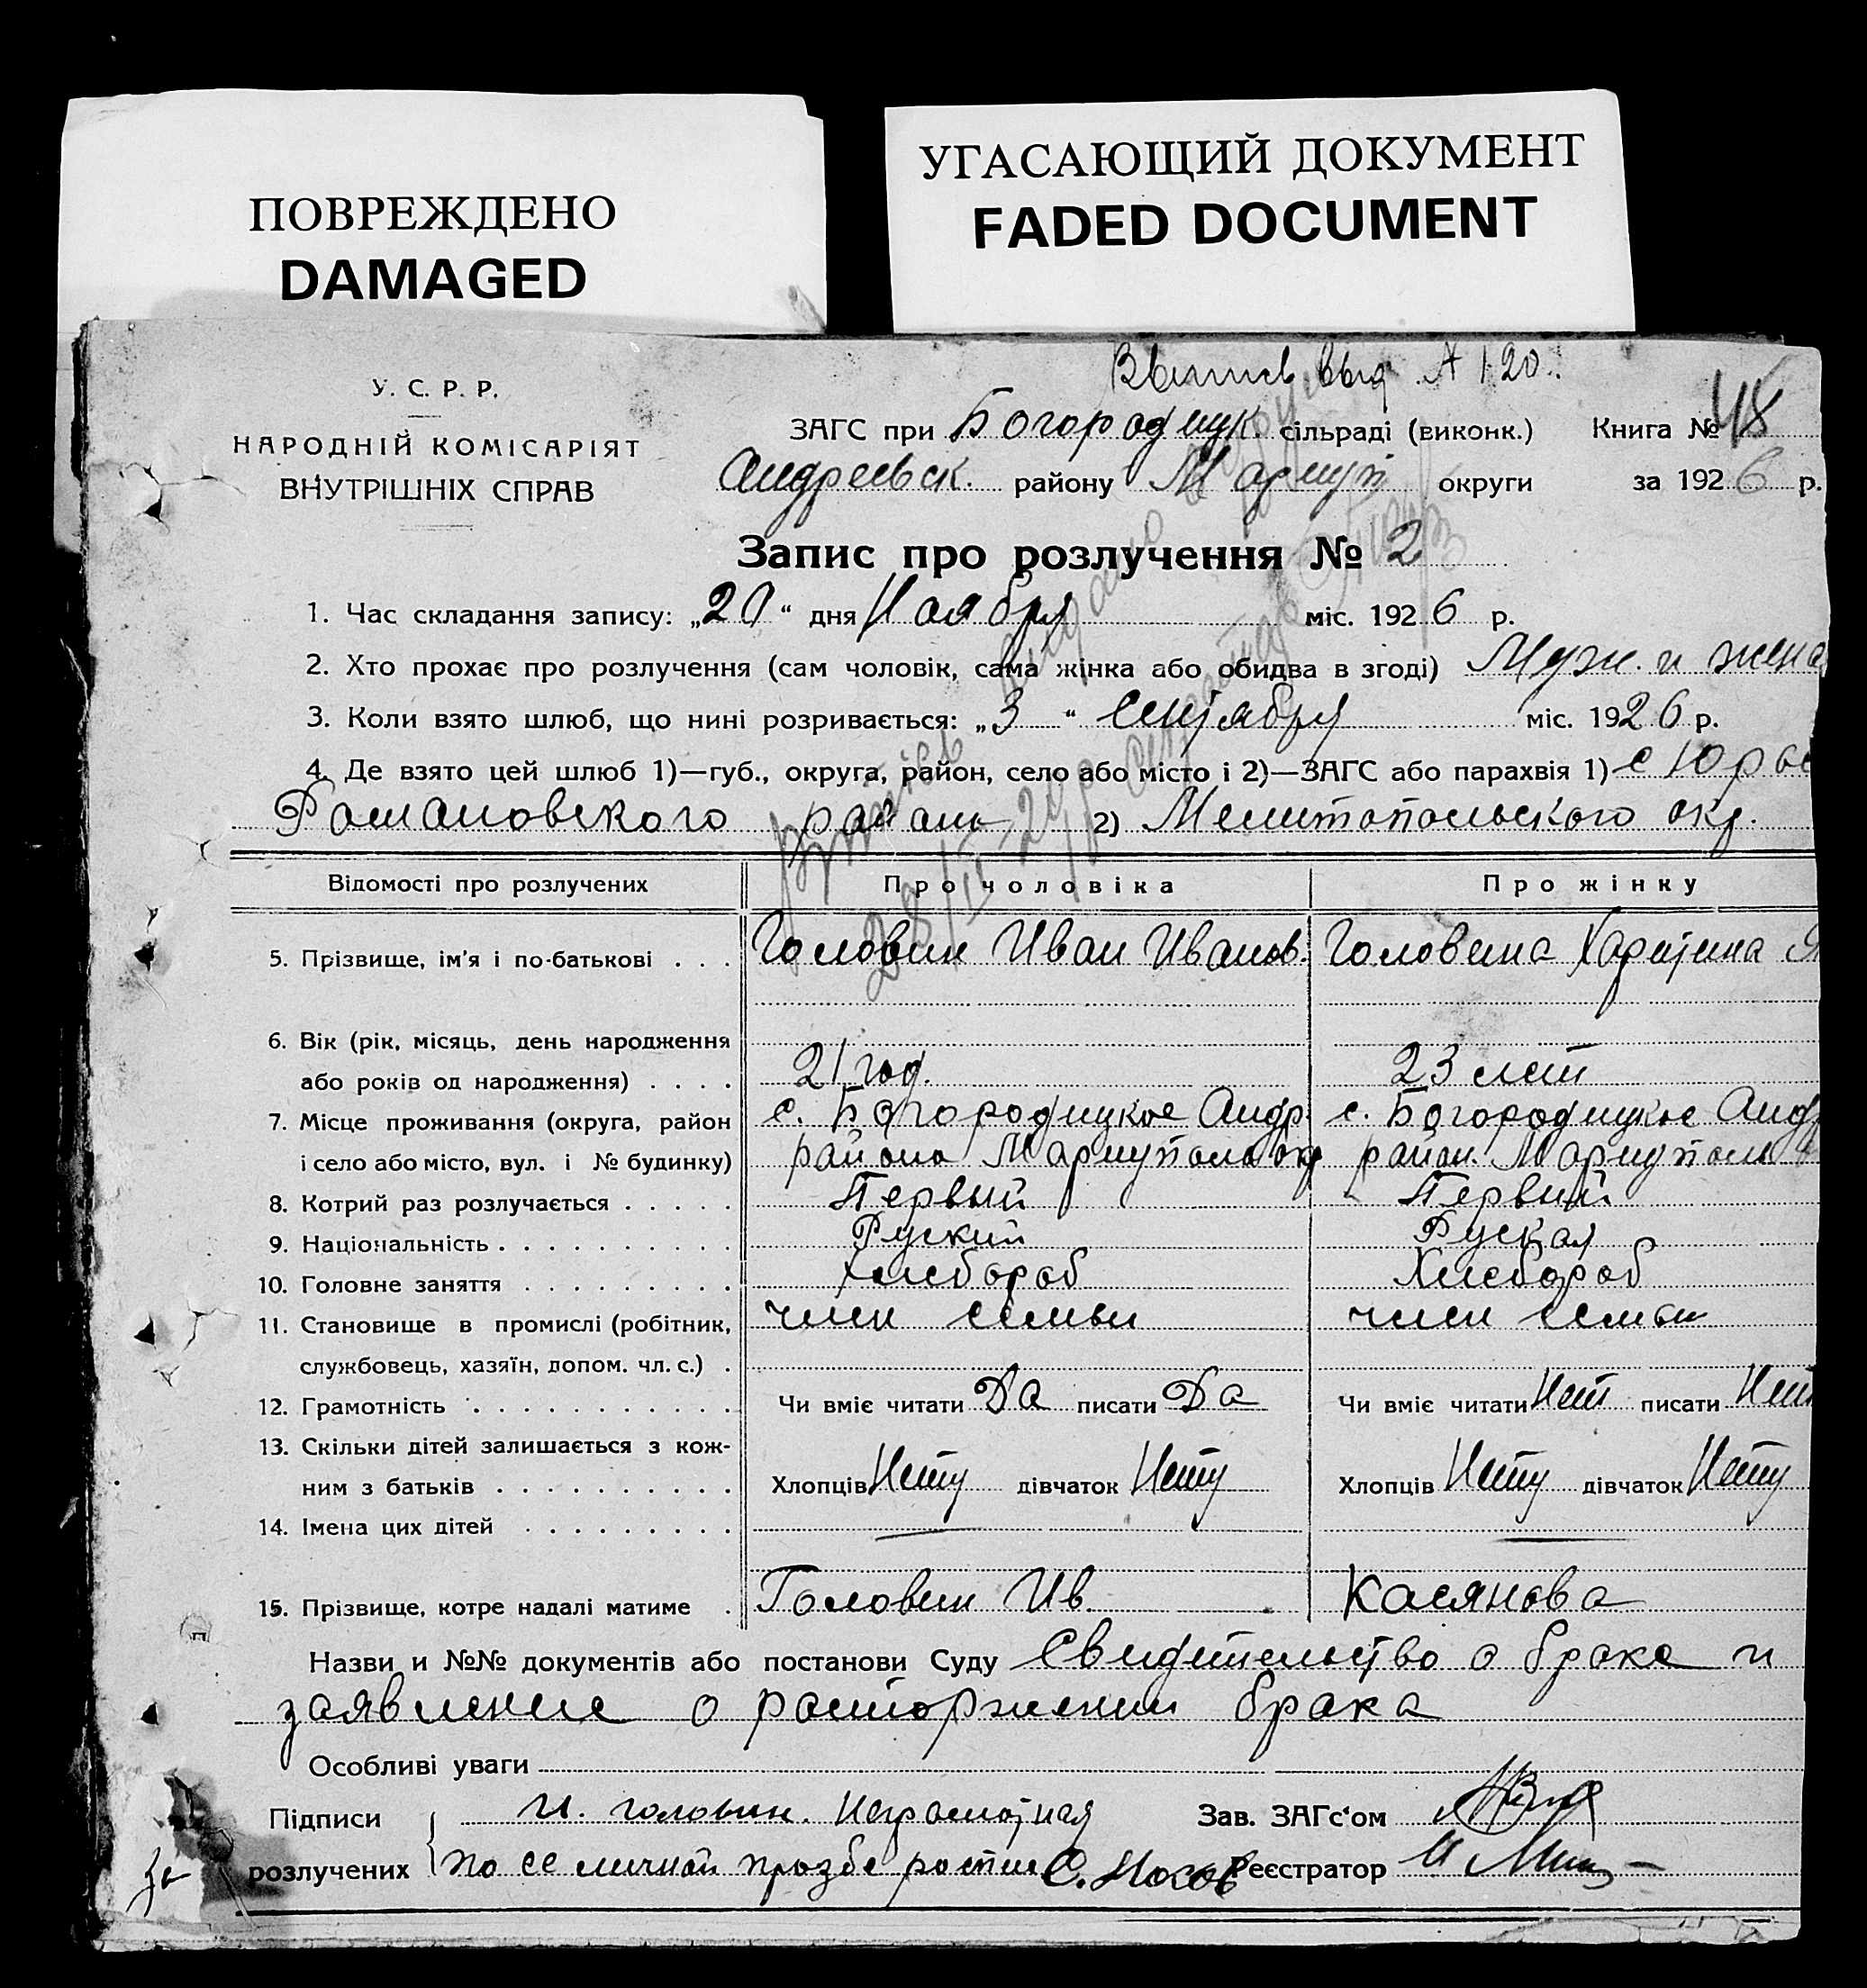 ПОВРЕЖДЕНО
DAMAGED
УГАСАЮЩИЙ ДОКУМЕНТ
FADED DOCUMENT
У. С. Р. Р.
НАРОДНІЙ КОМІСАРІЯТ
ВНУТРІШНІХ СПРАВ
ЗАГС при Богородицк. сільраді (виконк.) Книга № 48
Андреевск. району Мариуп округи за 1926 р.
Запис про розлучення № 2
1. Час складання запису: „20“ дня Ноября міс. 1926 р.
2. Хто прохає про розлучення (сам чоловік, сама жінка або обидва в згоді) Муж. и жена
3. Коли взято шлюб, що нині розривається: „3“ Сентября міс. 1926 р.
4. Де взято цей шлюб 1)—губ., округа, район, село або місто і 2)—ЗАГС або парахвія 1) с
Романовского района 2) Мелитопольского окр.
Відомості про розлучених Про чоловіка Про жінку
5. Прізвище, ім'я і по-батькові . . . Головин Иван Иванов. Головина Харитина
6. Вік (рік, місяць, день народження
або років од народження) . . . . 21 год. 23 лет
7. Місце проживання (округа, район с. Богородицкое Андр. с. Богородицкое Андр
і село або місто, вул. і № будинку) района Мариуполь окр район. Мариуполь
8. Котрий раз розлучається . . . . . Первый Первый
9. Національність . . . . . . . . . . Руский Руская
10. Головне заняття . . . . . . . . . Хлебороб Хлебороб
11. Становище в промислі (робітник, член семьи член семьи
службовець, хазяїн, допом. чл. с.) .
12. Грамотність . . . . . . . . . . . Чи вміє читати Да писати Да Чи вміє читати Нет писати Нет
13. Скільки дітей залишається з кож-
ним з батьків . . . . . . . . . . Хлопців Нету дівчаток Нету Хлопців Нету дівчаток Нету
14. Імена цих дітей . . . . . . . . .
15. Прізвище, котре надалі матиме . Головин Ив. Касянова
Назви и №№ документів або постанови Суду Свидетельство о браке и
заявление о расторжении брака
Особливі уваги
Підписи И. Головин. Неграмотная Зав. ЗАГс'ом
розлучених по ее личной прозбе С. Носов Реєстратор